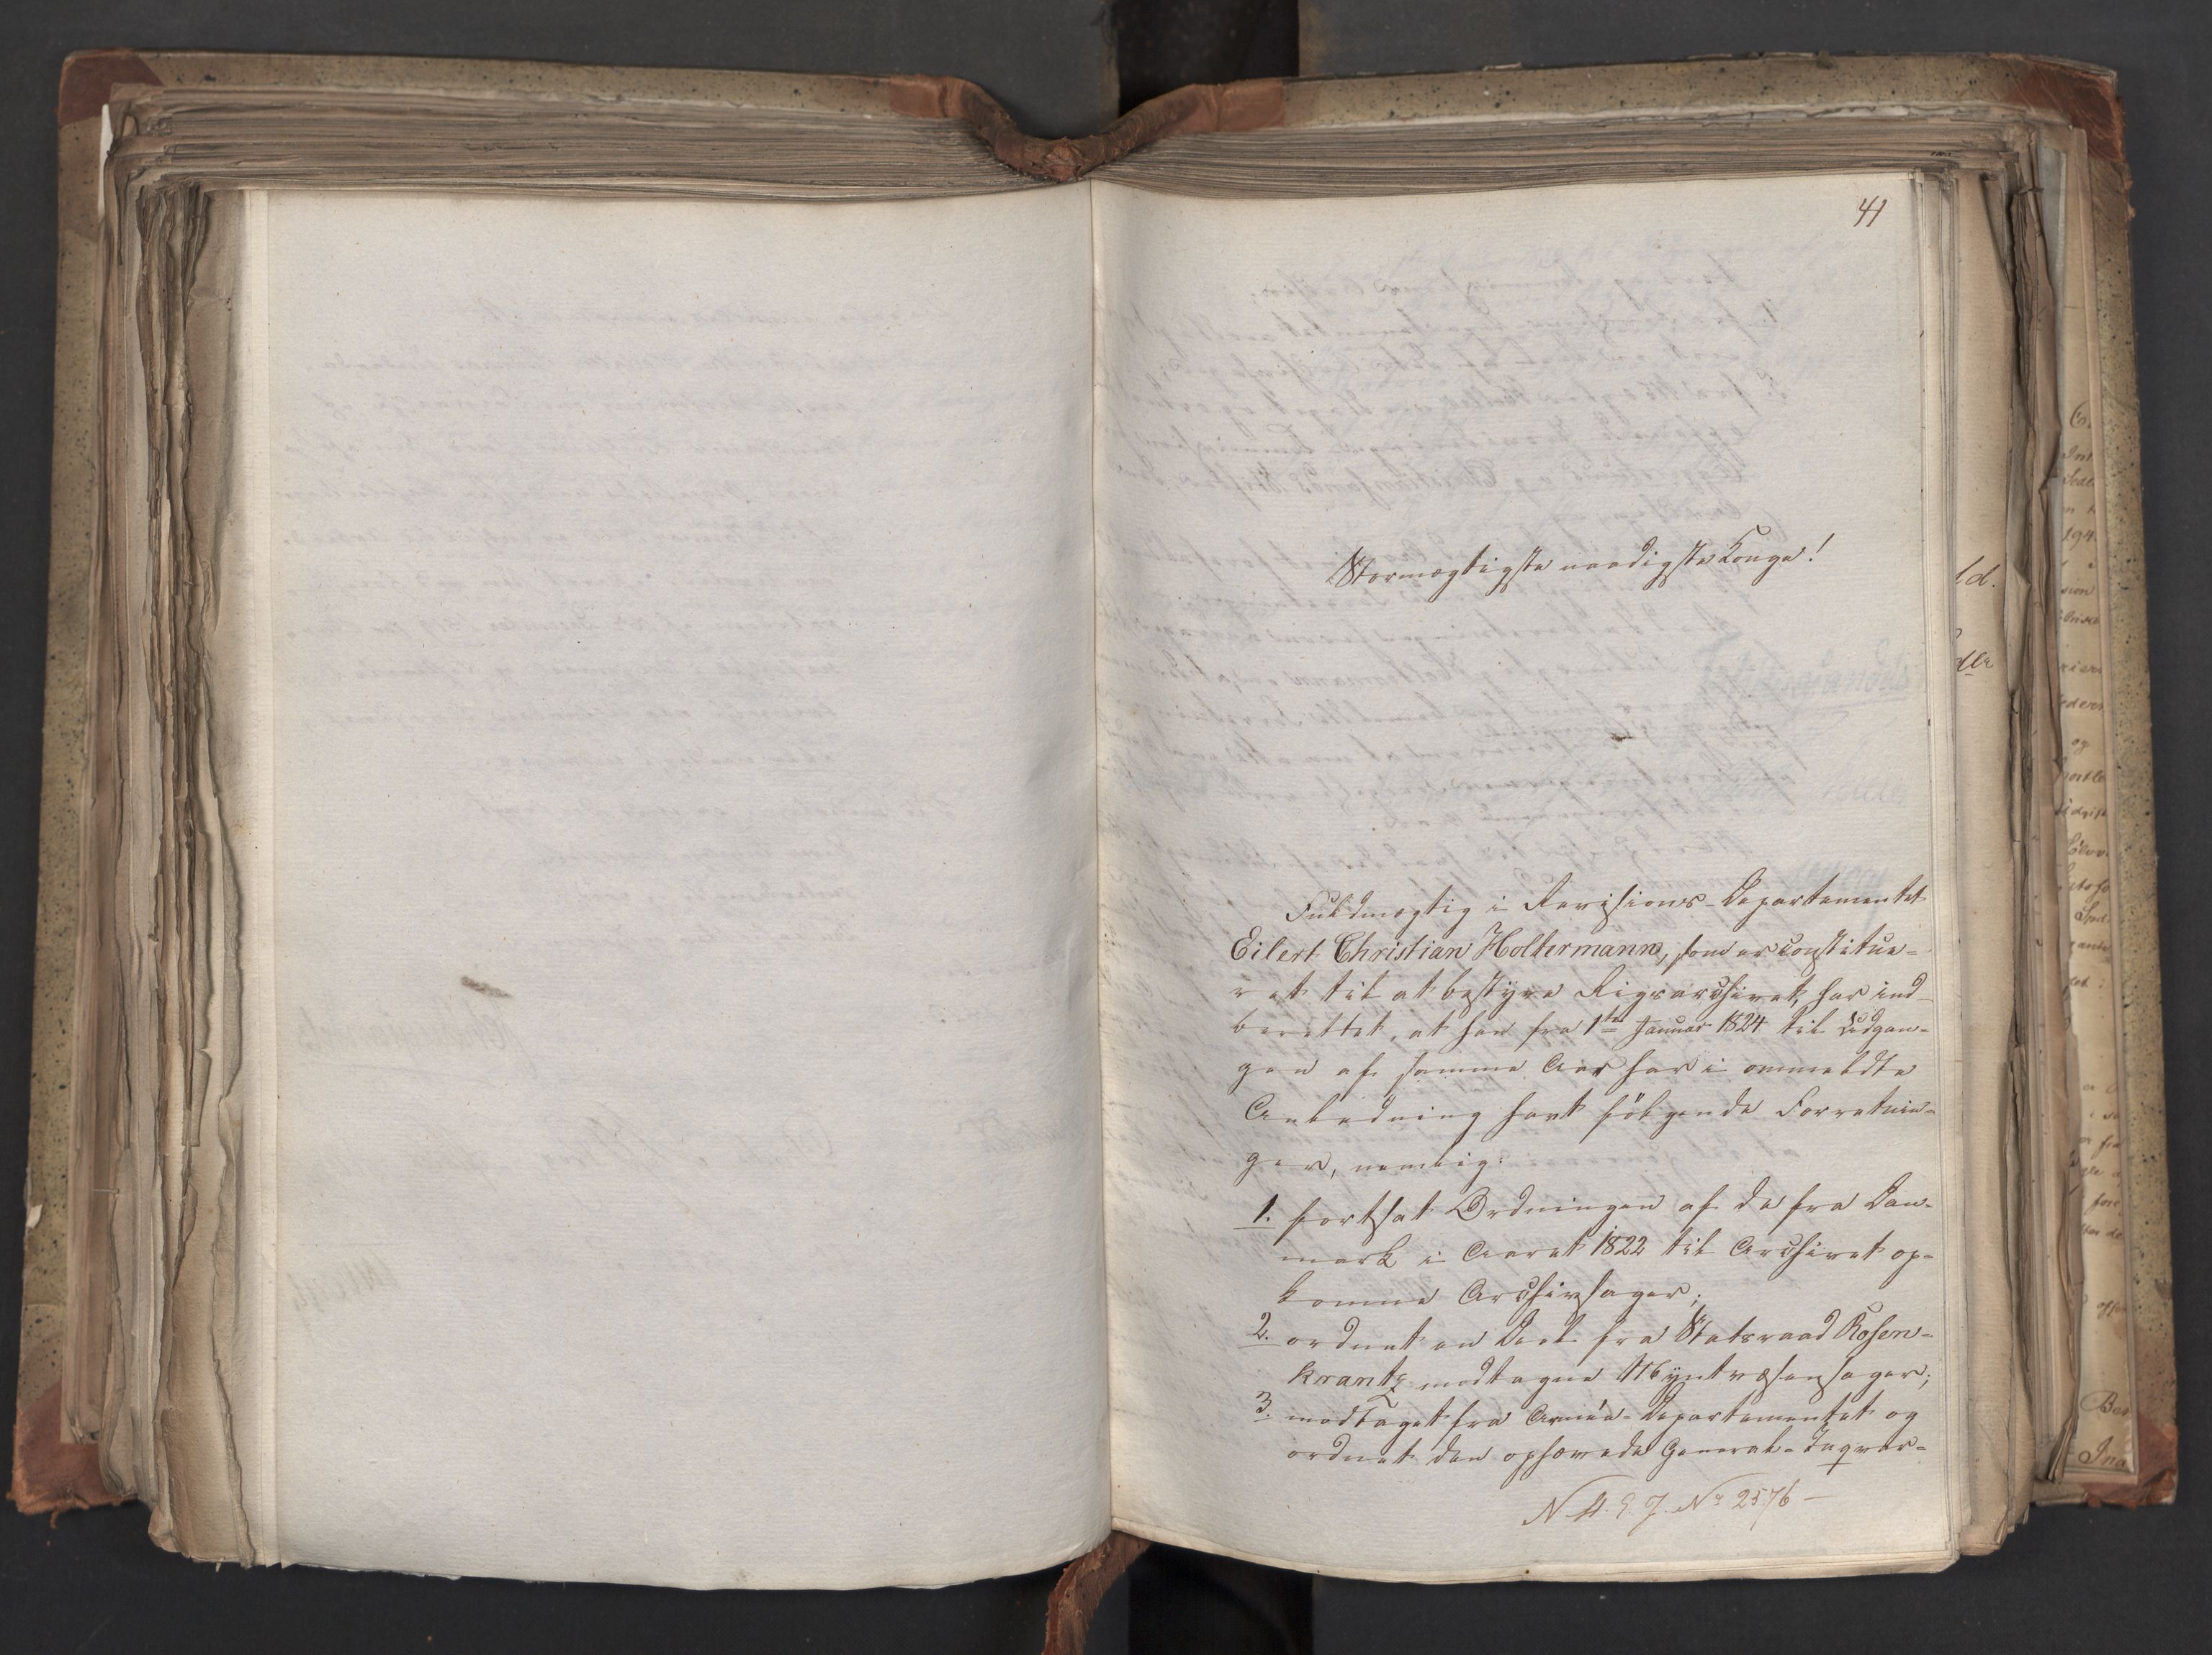 41
Stormægtigste naadigste Konge!
Fuldmægtig i Revisions-Departementet
Eilert Christian Holtermann, som er constitue-
ret til at bestyre Rigsarchivet, har ind-
berettet, at han fra 1ste Januar 1824 til Udgan-
gen af samme Aar har i ommeldte
Anledning havt følgende Forretnin-
ger, nemlig:
1. fortsat Ordningen af de fra Dan-
mark i Aaret 1822 til Archivet op-
komne Archivsager;
2. ordnet en Deel fra Statsraad Rosen-
krantz modtagne Myntvæsensager;
3. modtaget fra Armée-Departementet og
ordnet den ophævede General-Inqver-
No 2576